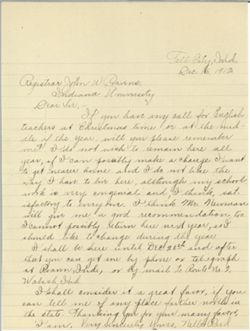 Tell City, Ind.
Dec. 16, 1912
Registrar John W. Cravens,
Indiana University
Dear Sir,
If you have any call for English
teachers at Christmas time or at the mid-
dle of the year, will you please remember
me? I do not wish to remain here all
year, if I can possibly make a change. I want
to get nearer home and I do not like the
way I have to live here, although my school
work is very congenial and I think, sat-
isfactory to everyone. I think Mr. Newman
will give me a good recommendation too.
I cannot possibly return here next year, so I
should like to change during the year.
I shall be here until Dec. 21st and after
that you can get me by phone or telegraph
at Roann, Ind., or by mail to Route No. 2,
Wabash, Ind.
I shall consider it a great favor, if you
can tell me of any place further north in
the state. Thanking you for your many favors,
I am, Very Sincerely Yours, Nellie